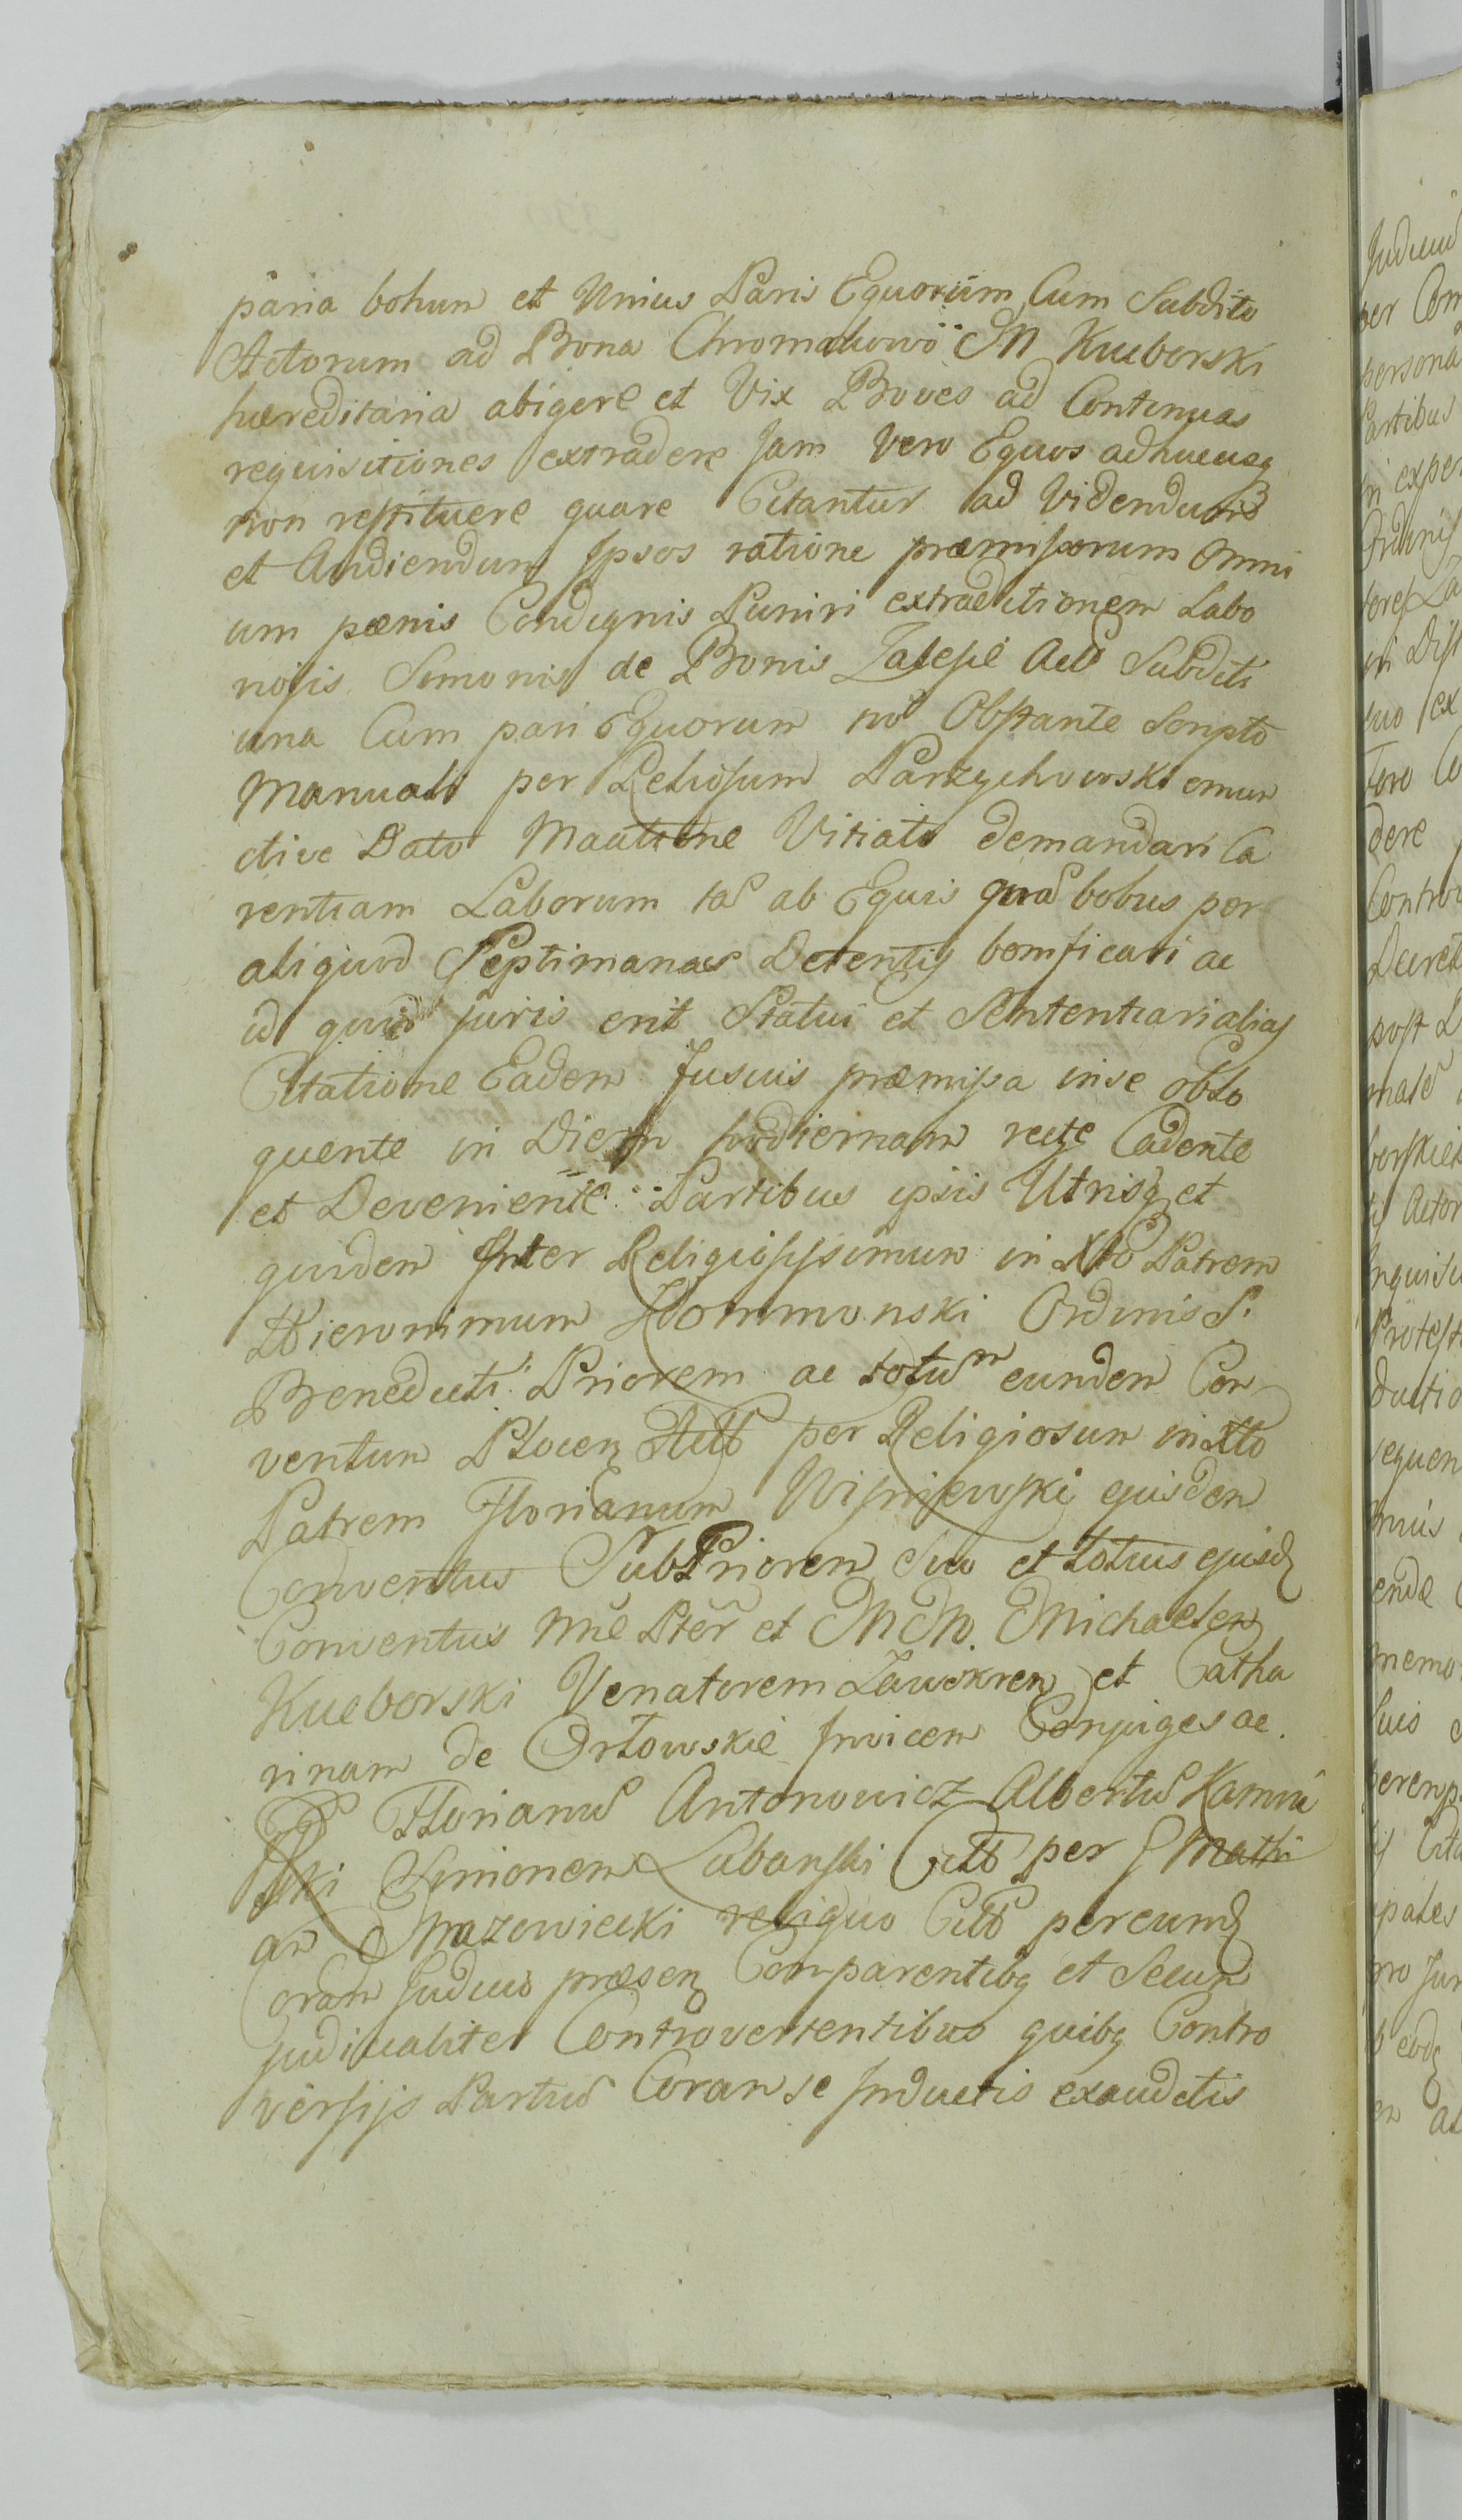 paria bohum et Unius Paris Equorum Cum Subdito
Actorum ad Bona Chromakowo M Kueborski
hæreditaria abigere et Vix Boves ad Continuas
requisitiones extradere Jam vero Equos adhucusq
non restituere quare Citantur ad Videndum
et Audiendum Ipsos ratione præmissorum Omni
um pænis Condignis Puniri extraditionem Labo
riosis Simonis de Bonis Zalesie Act Subditi
una Cum pari Equorum no Obstante Scripto
Manuali per Reliosum Parzychowski emun
ctive Dato Viriato demandari Ca
rentiam Laborum ta ab Equis qua bobus per
aliquod Septimanas Detentis bonificari ac
id quid juris erit Statui et Sententiari alias
Citatione Eadem fusius præmissa in se oblo
quente in Diem hodiernam recte Cadente
et Deveniente Partibus ipsis Utrisq et
quidem Inter Religiosissimum in Xto Patrem
Hieronimum Kommonski Ordinis S.
Benedicti Priorem ac totum eundem Con
ventum Plocen Actt per Religiosum in Xto
Patrem Florianum Wisniewski ejusdem
Conventus SubPriorem Suo et totius ejusd
Conventus Nne Pter et M M. Michaelem
Kueborski Venatorem Zawskren et Catha
rinam de Orłowskie Invicem Conjuges ac
Florianu Antonowicz Albertu Kamin
ski Simonem Labanski Citt per G Mathi
am Mazowiecki reliquo Citt per eund
Coram Judicio præsen Comparentibq et Secum
judicialiter Controvertentibus quibq Contro
versijs Partiu Coram se Inductis exauditis